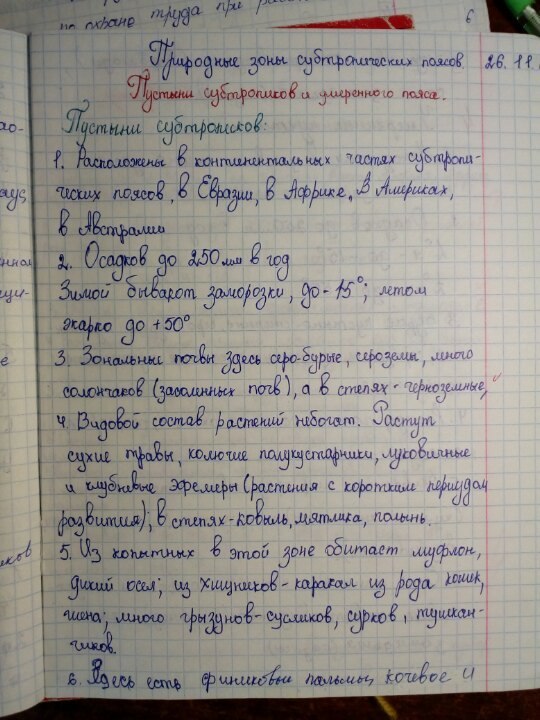 по охране труда при
6
Природные зоны субтропических поясов 26.11.
Пустыни субтропиков и умеренного пояса.
Пустыни субтропиков:
1. Расположены в континентальных частях субтропи-
ческих поясов, в Евразии, в Африке, в Америках,
в Австралии
2. Осадков до 250 мм в год
Зимой бывают заморозки, до -15°; летом
жарко до +50°
3. Зональные почвы здесь серо-бурые, сероземы, много
солончаков (засоленных почв), а в степях - черноземные,
4. Видовой состав растений небогат. Растут
сухие травы, колючие полукустарники, луковичные
и клубневые эфемеры (растения с коротким периудом
развития); в степях - ковыль, мятлика, полынь.
5. Из копытных в этой зоне обитает муфлон,
дикий осел; из хищников - каракал из рода кошек,
гиена; много грызунов - сусликов, сурков, тушкан-
чиков.
6. Здесь есть финиковые пальмы, кочевое и